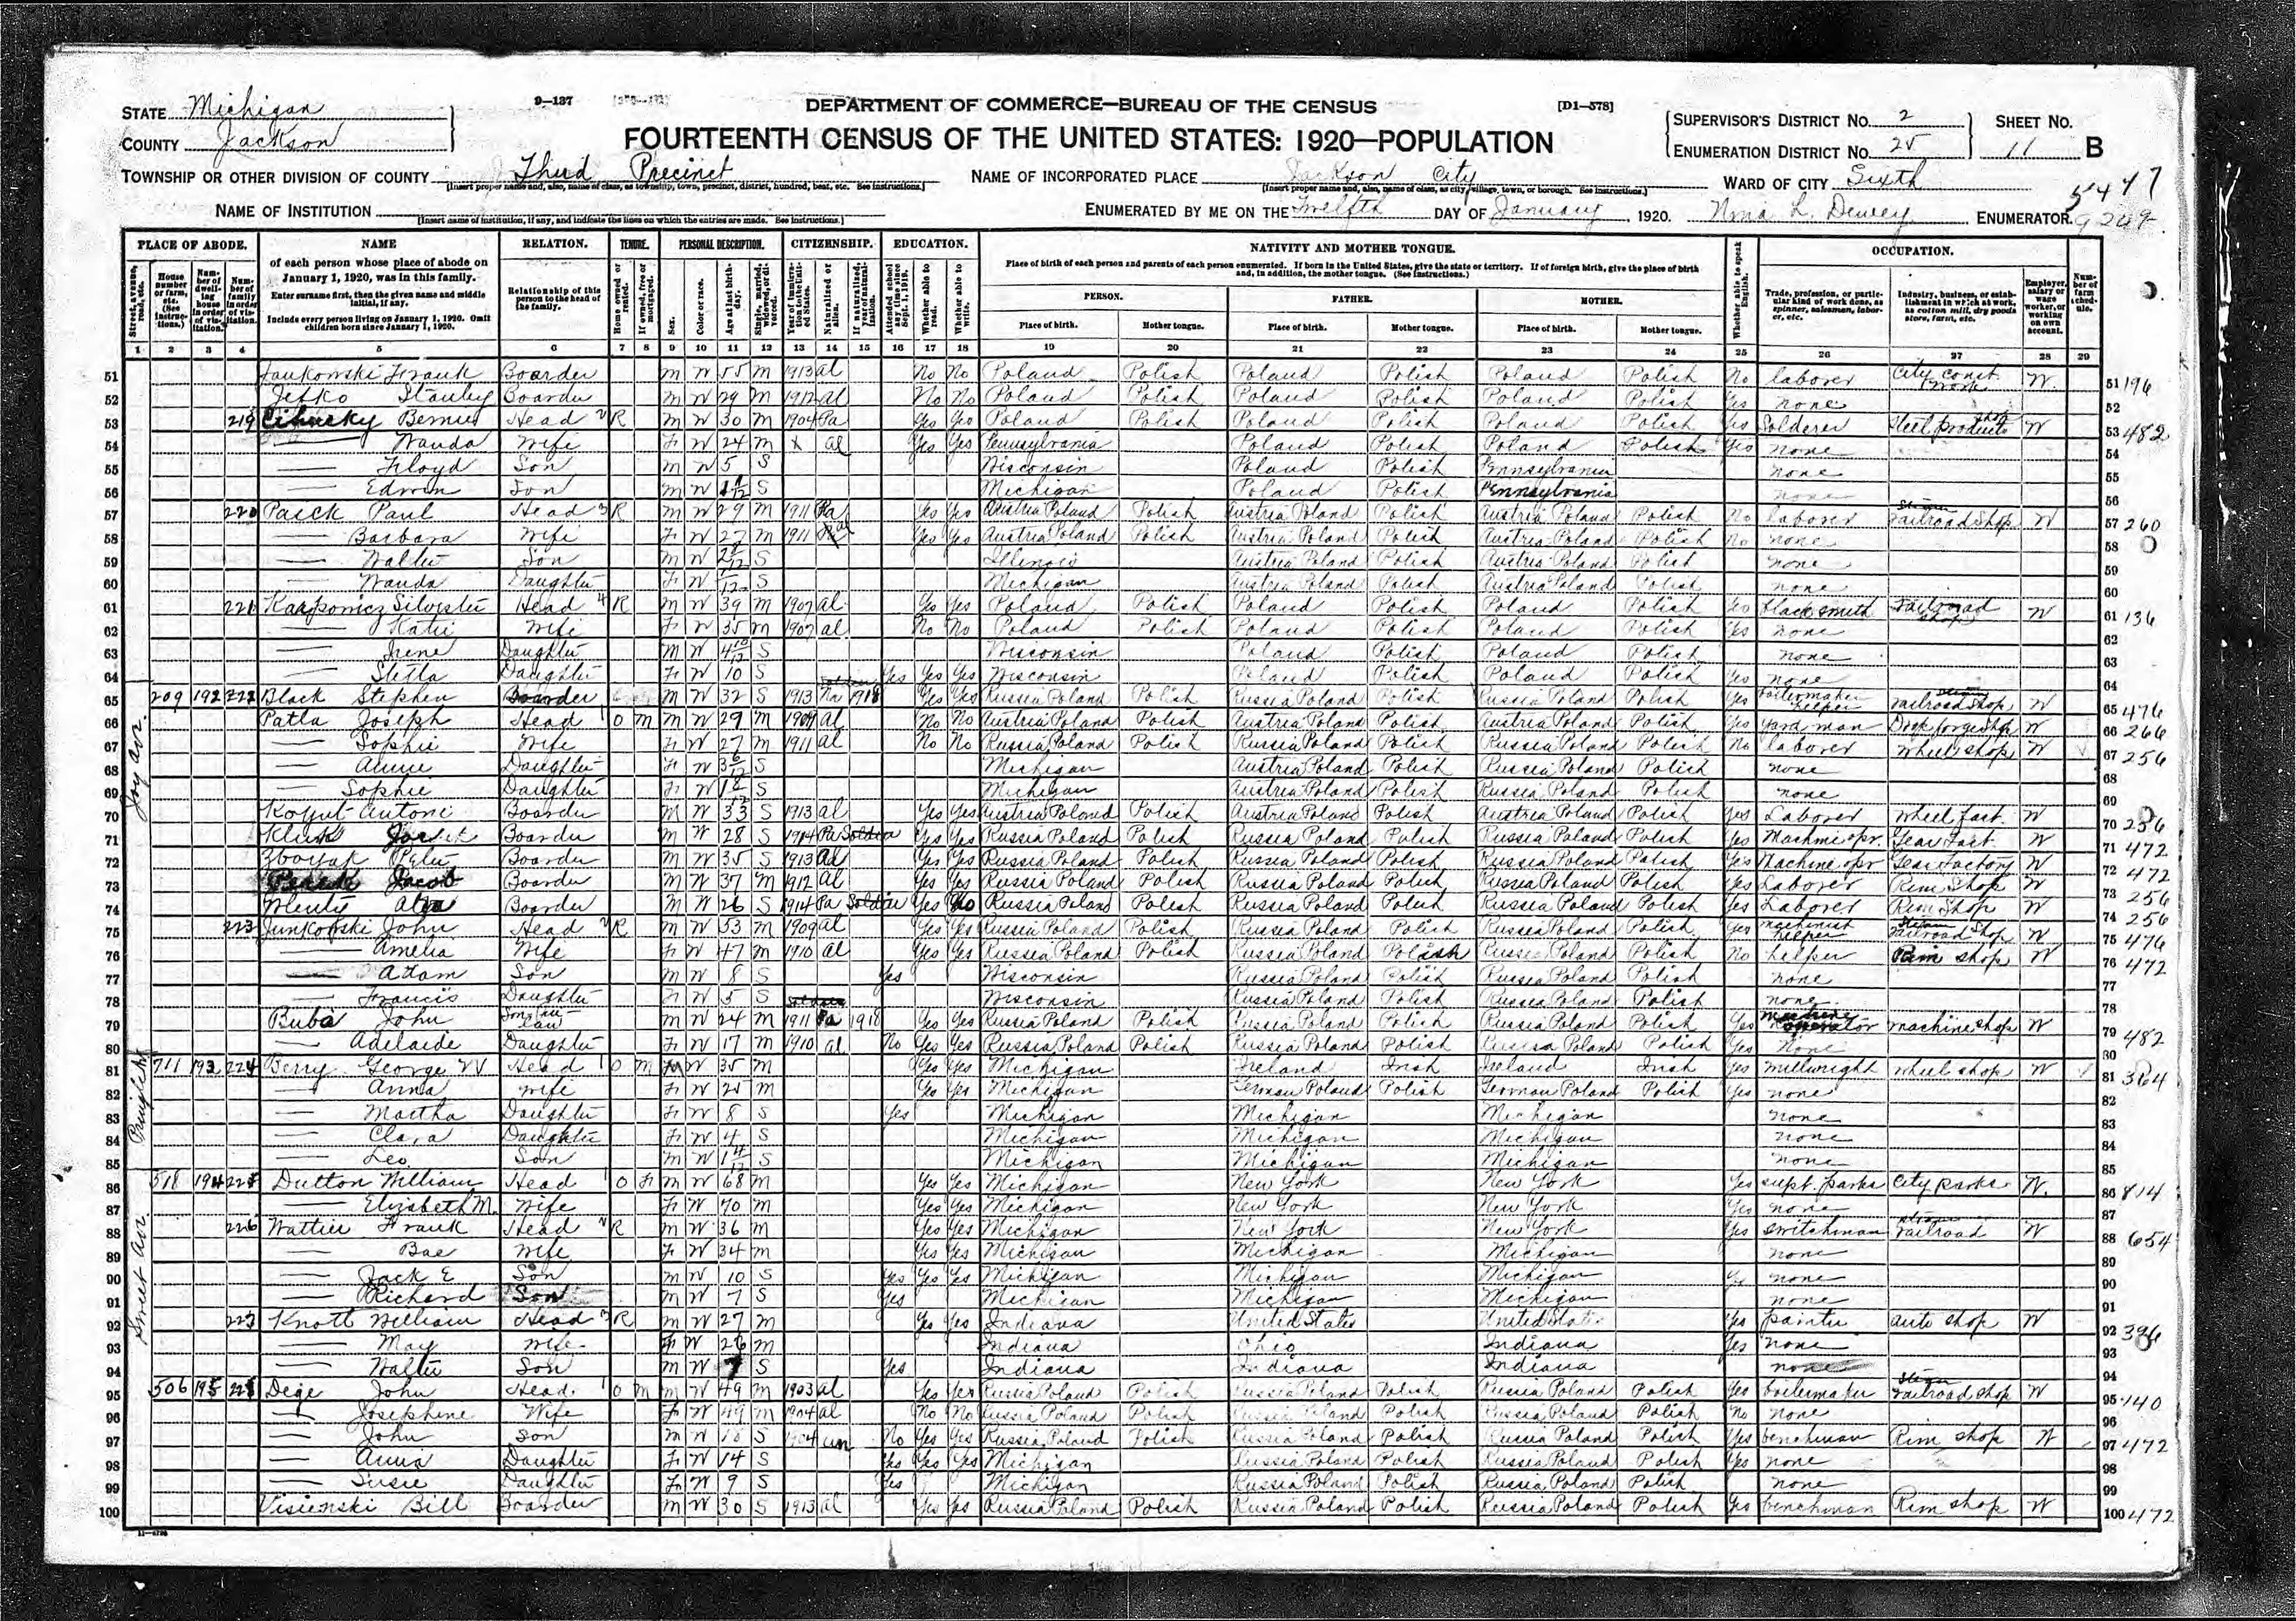 9—137
DEPARTMENT OF COMMERCE—BUREAU OF THE CENSUS
[D1—578]
FOURTEENTH CENSUS OF THE UNITED STATES: 1920—POPULATION
STATE Michigan
COUNTY Jackson
SUPERVISOR'S DISTRICT No. 2
ENUMERATION DISTRICT No. 25
SHEET No. 11 B
TOWNSHIP OR OTHER DIVISION OF COUNTY Third Precinct
[Insert proper name and, also, name of class, as township, town, precinct, district, hundred, beat, etc. See instructions.]
NAME OF INCORPORATED PLACE Jackson City
[Insert proper name and, also, name of class, as city, village, town, or borough. See instructions.]
WARD OF CITY Sixth
5447
NAME OF INSTITUTION
[Insert name of institution, if any, and indicate the lines on which the entries are made. See instructions.]
ENUMERATED BY ME ON THE Twelfth DAY OF January, 1920. Nina L. Dewey ENUMERATOR.
PLACE OF ABODE. NAME RELATION. TENURE. PERSONAL DESCRIPTION. CITIZENSHIP. EDUCATION. NATIVITY AND MOTHER TONGUE. OCCUPATION.
of each person whose place of abode on January 1, 1920, was in this family.
Enter surname first, then the given name and middle initial, if any.
Include every person living on January 1, 1920. Omit children born since January 1, 1920.
Relationship of this person to the head of the family.
Place of birth of each person and parents of each person enumerated. If born in the United States, give the state or territory. If of foreign birth, give the place of birth and, in addition, the mother tongue. (See instructions.)
PERSON. FATHER. MOTHER.
Place of birth. Mother tongue. Place of birth. Mother tongue. Place of birth. Mother tongue.
1 2 3 4 5 6 7 8 9 10 11 12 13 14 15 16 17 18 19 20 21 22 23 24 25 26 27 28 29
51 Frank Boarder m W 55 m 1913 al No No Poland Polish Poland Polish Poland Polish No laborer City const. work W. 51 196
52 Stanley Boarder m W 29 m 1912 al No No Poland Polish Poland Polish Poland Polish Yes none 52
53 219 Head R m W 30 m 1904 Pa Yes Yes Poland Polish Poland Polish Poland Polish Yes Solderer Steel products shop W 53 482
54 Wanda Wife F W 24 m x al Yes Yes Pennsylvania Poland Polish Poland Polish Yes none 54
55 Floyd Son m W 5 S Wisconsin Poland Polish Pennsylvania none 55
56 Edwin Son m W S Michigan Poland Polish Pennsylvania none 56
57 220 Paick Paul Head 3 R m W 29 m 1911 Pa Yes Yes Austria Poland Polish Austria Poland Polish Austria Poland Polish No laborer steam railroad shop W 57 260
58 Barbara Wife F W 27 m 1911 Yes Yes Austria Poland Polish Austria Poland Polish Austria Poland Polish No none 58
59 Walter Son m W S Illinois Austria Poland Polish Austria Poland Polish none 59
60 Wanda Daughter F W S Michigan Austria Poland Polish Austria Poland Polish none 60
61 221 Karpowicz Silvester Head 4 R m W 39 m 1907 al Yes Yes Poland Polish Poland Polish Poland Polish Yes blacksmith railroad shop W 61 136
62 Katie Wife F W 35 m 1907 al No No Poland Polish Poland Polish Poland Polish Yes none 62
63 Irene Daughter m W 4 10/12 S Wisconsin Poland Polish Poland Polish none 63
64 Stella Daughter F W 10 S Yes Yes Yes Wisconsin Poland Polish Poland Polish Yes none 64
65 209 192 222 Black Stephen Boarder m W 32 S 1913 Na 1918 Yes Yes Russia Poland Polish Russia Poland Polish Russia Poland Polish Yes boilermaker helper steam railroad shop W 65 476
66 Patla Joseph Head 1 O m m W 29 m 1909 al No No Austria Poland Polish Austria Poland Polish Austria Poland Polish Yes yard man Drop forge shop W 66 266
67 Sophie Wife F W 27 m 1911 al No No Russia Poland Polish Russia Poland Polish Russia Poland Polish No laborer wheel shop W 67 256
68 Annie Daughter F W 3 6/12 S Michigan Austria Poland Polish Russia Poland Polish none 68
69 Sophie Daughter F W S Michigan Austria Poland Polish Russia Poland Polish none 69
70 Kogut Antoni Boarder m W 33 S 1913 al Yes Yes Austria Poland Polish Austria Poland Polish Austria Poland Polish Yes Laborer wheel fact. W 70 256
71 Boarder m W 28 S 1914 Pa Soldier Yes Yes Russia Poland Polish Russia Poland Polish Russia Poland Polish Yes Machine opr. Gear Fact. W 71 472
72 Peter Boarder m W 35 S 1913 al Yes Yes Russia Poland Polish Russia Poland Polish Russia Poland Polish Yes Machine opr Gear Factory W 72 472
73 Jacob Boarder m W 37 m 1912 al Yes Yes Russia Poland Polish Russia Poland Polish Russia Poland Polish Yes Laborer Rim Shop W 73 256
74 Boarder m W 26 S 1914 Pa Soldier Yes No Russia Poland Polish Russia Poland Polish Russia Poland Polish Yes Laborer Rim Shop W 74 256
75 223 Junkowski John Head R m W 53 m 1909 al Yes Yes Russia Poland Polish Russia Poland Polish Russia Poland Polish Yes machinist helper steam railroad shop W 75 476
76 Amelia Wife F W 47 m 1910 al Yes Yes Russia Poland Polish Russia Poland Polish Russia Poland Polish No helper Rim shop W 76 472
77 Adam Son m W 8 S Yes Wisconsin Russia Poland Polish Russia Poland Polish none 77
78 Francis Daughter F W 5 S Wisconsin Russia Poland Polish Russia Poland Polish none 78
79 Buba John Son-in-law m W 24 m 1911 Pa 1918 Yes Yes Russia Poland Polish Russia Poland Polish Russia Poland Polish Yes machine operator machine shop W 79 482
80 Adelaide Daughter F W 17 m 1910 al No Yes Yes Russia Poland Polish Russia Poland Polish Russia Poland Polish Yes None 80
81 711 193 224 Berry George W Head 1 O m m W 35 m Yes Yes Michigan Ireland Irish Ireland Irish Yes millwright wheel shop W 81 364
82 Anna Wife F W 25 m Yes Yes Michigan German Poland Polish German Poland Polish Yes none 82
83 Martha Daughter F W 8 S Yes Michigan Michigan Michigan none 83
84 Clara Daughter F W 4 S Michigan Michigan Michigan none 84
85 Leo Son m W 1 4/12 S Michigan Michigan Michigan none 85
86 518 194 225 Dutton William Head 1 O F m W 68 m Yes Yes Michigan New York New York Yes supt. parks City parks W. 86 814
87 Elizabeth M. Wife F W 70 m Yes Yes Michigan New York New York Yes none 87
88 226 Frank Head R m W 36 m Yes Yes Michigan New York New York Yes switchman steam railroad W 88 654
89 Wife F W 34 m Yes Yes Michigan Michigan Michigan Yes none 89
90 Jack E Son m W 10 S Yes Yes Yes Michigan Michigan Michigan Yes none 90
91 Richard Son m W 7 S Yes Michigan Michigan Michigan none 91
92 227 Knott William Head 3 R m W 27 m Yes Yes Indiana United States United States Yes painter auto shop W 92 396
93 May Wife F W 26 m Indiana Ohio Indiana Yes none 93
94 Walter Son m W 7 S Yes Indiana Indiana Indiana none 94
95 506 195 228 Dege John Head 1 O m m W 49 m 1903 al Yes Yes Russia Poland Polish Russia Poland Polish Russia Poland Polish Yes boilermaker steam railroad shop W 95 140
96 Josephine Wife F W 49 m 1904 al No No Russia Poland Polish Russia Poland Polish Russia Poland Polish No none 96
97 John Son m W 18 S 1904 un No Yes Yes Russia Poland Polish Russia Poland Polish Russia Poland Polish Yes benchman Rim shop W 97 472
98 Anna Daughter F W 14 S Yes Yes Yes Michigan Russia Poland Polish Russia Poland Polish Yes none 98
99 Susie Daughter F W 9 S Yes Michigan Russia Poland Polish Russia Poland Polish none 99
100 Visienski Bill Boarder m W 30 S 1913 al Yes Yes Russia Poland Polish Russia Poland Polish Russia Poland Polish Yes benchman Rim shop W 100 472